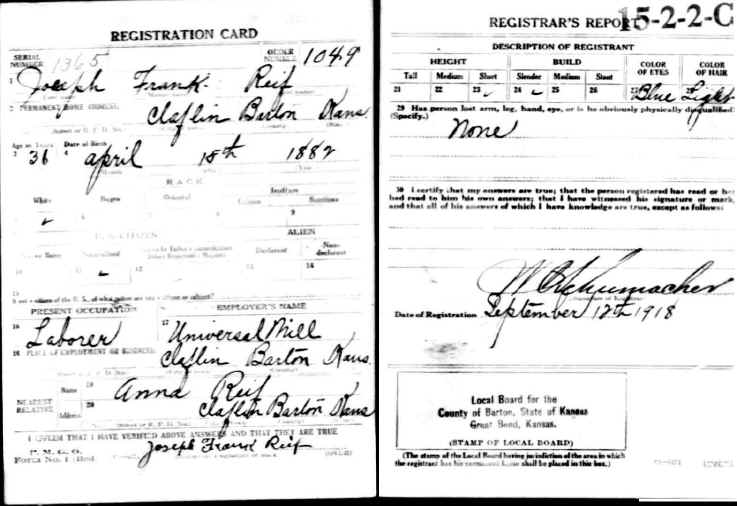 REGISTRATION CARD
SERIAL NUMBER 1365 ORDER NUMBER 1049
1 Joseph Frank Reif
2 PERMANENT HOME ADDRESS
Claflin Barton Kans.
Age in Years Date of Birth
3 36 4 April 18th 1882
RACE
White Negro Oriental Indian
Citizen
5 6 7 9
U. S. CITIZEN ALIEN
Declarant Non-declarant
10 11 12 13 14
15
If not a citizen of the U. S., of what nation are you a citizen or subject?
PRESENT OCCUPATION EMPLOYER'S NAME
16 Laborer 17 Universal Mill
18 PLACE OF EMPLOYMENT OR BUSINESS
Claflin Barton Kans.
NEAREST RELATIVE
Name 19 Anna Reif
Address 20 Claflin Barton Kans
I AFFIRM THAT I HAVE VERIFIED ABOVE ANSWERS AND THAT THEY ARE TRUE
P. M. G. O.
Form No. 1 (Red) Joseph Frank Reif
REGISTRAR'S REPORT 15-2-2-C
DESCRIPTION OF REGISTRANT
HEIGHT BUILD COLOR OF EYES COLOR OF HAIR
Tall Medium Short Slender Medium Stout
21 22 23 24 25 26 27 Blue 28 Light
29 Has person lost arm, leg, hand, eye, or is he obviously physically disqualified?
(Specify.)
None
30 I certify that my answers are true; that the person registered has read or has
had read to him his own answers; that I have witnessed his signature or mark,
and that all of his answers of which I have knowledge are true, except as follows:
W Schumacher
Date of Registration September 12th 1918
Local Board for the
County of Barton, State of Kansas
Great Bend, Kansas.
(STAMP OF LOCAL BOARD)
(The stamp of the Local Board having jurisdiction of the area in which
the registrant has his permanent home shall be placed in this box.)